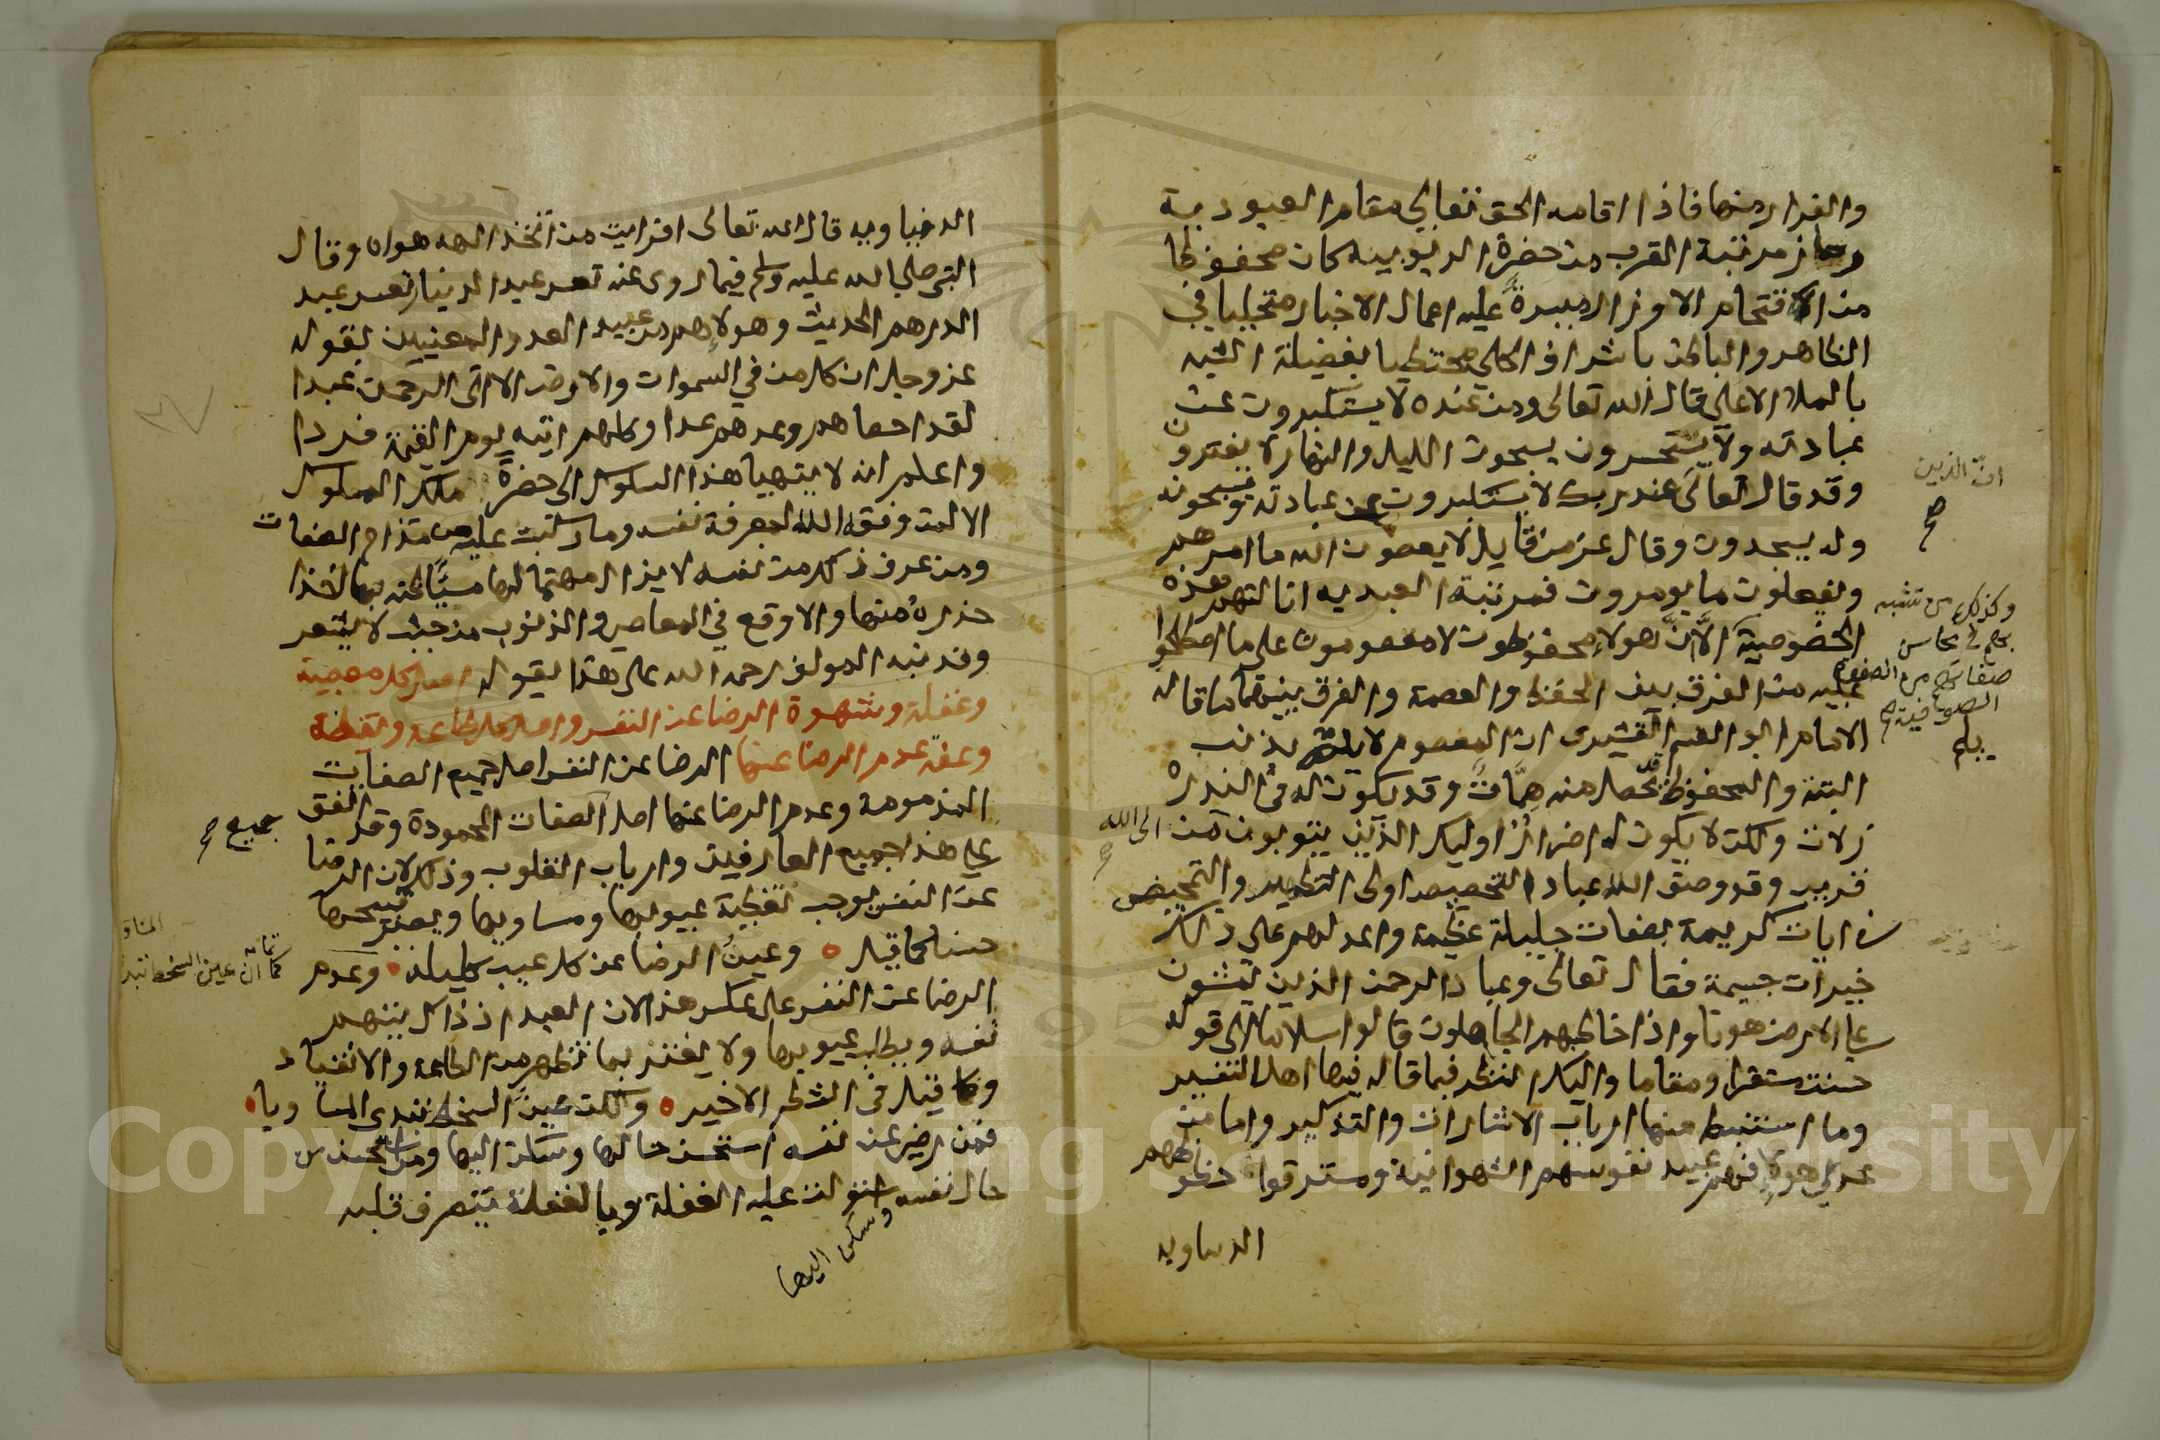 والفرار منها فاذا اقامه الحق تعالي مقام العبودية
وحاز مرتبة القرب من حضرة الربوبيه كان محفوظا
من الاقتحام الاوزار ميسرة عليه اعمال الاخيار متجليا في
الظاهر والباطن باشراف الحلي محتظيا بفضيلة الشبه
بالملا الاعلي قال الله تعالى ومن عنده لا يستكبرون عن
عبادته ولا يستحسرون يسبحون الليل والنهار لا يفترون
وقد قال تعالى عند ربك لا يستكبرون عن عبادته ويسبحونه
ان الذين
صح
وله يسجدون وقال عز من قايل لا يعصون الله ما امرهم
ويفعلون ما يومرون فمرتبة العبديه انالتهم هذه
وكذلك من تشبه
بهم في محاسن
صفاتهم من الصفوة
الصوفية صح
الخصوصية الا ان هولاء محفوظون لا معصومون على ما اصطلحوا
عليه من الفرق بين الحفظ والعصمة والفرق بينهما ما قاله
الامام ابو القسم القشيرى ان المعصوم لا يلم بذنب
يلم
البتة والمحفوظ قد تحصل منه هنات وقد يكون له في الندرة
زلات ولكن لا يكون له اصرار اوليك الذين يتوبون من
الى الله
صح
قريب وقد وصف الله عباد التخصيص اولى التطهير والتمحيص
في ايات كريمة بصفات جليلة عظيمة واعد لهم على ذلك
خيرات جسيمة فقال تعالى وعباد الرحمن الذين يمشون
على الارض هونا واذا خاطبهم الجاهلون قالوا سلاما الى قوله
حسنت مستقرا ومقاما واليك النظر فيما قاله فيها اهل التفسير
وما استنبط منها ارباب الاشارات والتذكير واما من
عدى هولاء فهم عبيد نفوسهم الشهوانية ومسترقوا حظوظهم
الدنياويه
الدنياويه قال الله تعالى افرايت من اتخذ الهه هواه وقال
النبي صلي الله عليه وسلم فيما روى عنه تعس عبد الدينار تعس عبد
الدرهم الحديث وهولاء هم من عبيد العدد المعنيين بقوله
عز وجل ان كل من في السموات والارض الا اتى الرحمن عبدا
لقد احصاهم وعدهم عدا وكلهم اتيه يوم القيمة فردا
واعلم انه لا يتهيا هذا السلوك الى حضرة ملك الملوك
الا لمن وفقه الله لمعرفة نفسه وما ركبت عليه من مذام الصفات
ومن عرف ذلك من نفسه لا يزال مهتما لها مسيا لظنه بها اخذا
حذره منها والا وقع في المعاصي والذنوب من حيث لا يشعر
وقد نبه المولف رحمه الله على هذا بقوله اصل كل معصية
وغفلة وشهوة الرضا عن النفس واصل كل طاعة ويقظة
وعفة عدم الرضا عنها الرضا عن النفس اصل جميع الصفات
المذمومة وعدم الرضا عنها اصل الصفات المحمودة وقد اتفق
جميع صح
على هذا جميع العارفين وارباب القلوب وذلك لان الرضا
عن النفس يوجب تغطية عيوبها ومساويها ويصير قبيحها
حسنا كما قيل ه وعين الرضا عن كل عيب كليلة ه وعدم
كما ان عين السخط تبد
الرضا عن النفس على عكس هذا لان العبد اذ ذاك يتهم
نفسه ويطلب عيوبها ولا يغتر بما تظهر من الطاعة والانقياد
وكما قيل في الشطر الاخير ه ولكن عين السخط تبدى المساويا ه
فمن رضي عن نفسه استحسن حالها وسكن اليها ومن استحسن
حال نفسه استولت عليه الغفلة وبالغفلة يتصرف قلبه
وسكن اليها